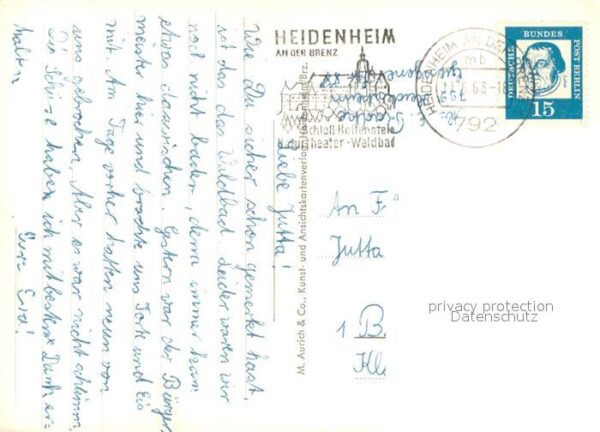 HEIDENHEIM
AN DER BRENZ
Schloß Hellenstein
Naturtheater-Waldbad
HEIDENHEIM AN DER BRENZ
mb
63
792
BUNDES
POST BERLIN
DEUTSCHE
15
Liebe Jutta!
Wie Du sicher schon gemerkt hast,
ist das das Waldbad. Leider waren wir
noch nicht baden, denn immer kam
etwas dazwischen. Gestern war der Bürger-
meister hier und brachte uns Torte und Eis
mit. Am Tage vorher hatten neun von
uns gebrochen. Aber es war nicht schlimm.
Die Schuhe habe ich mit bestem Dank er-
halten
Eure Eva!
M. Aurich & Co., Kunst- und Ansichtskartenverlag, Heidenheim/Brz.
An F
Jutta
1 B
Kl
privacy protection
Datenschutz